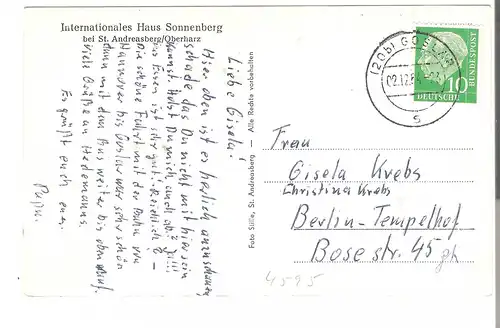 Internationales Haus Sonnenberg
bei St. Andreasberg/Oberharz
Liebe Gisela!
Hier oben ist es herrlich anzuschauen
schade das Du nicht mit hier sein
kannst. Holst Du mich auch ab?
Das Essen ist sehr gut. Reichlich
Die schöne Fahrt mit der Bahn von
Hannover bis Goslar war sehr schön
dann mit dem Bus weiter bis oben
Viele Grüße an Hedemanns.
Es grüßt euch euer
Papa.
Foto Stille, St. Andreasberg — Alle Rechte vorbehalten
(20b) GOSLAR
02.12.54
s
DEUTSCHE
BUNDESPOST
10
Frau
Gisela Krebs
Christina Krebs
Berlin-Tempelhof
Bosestr. 45
4595